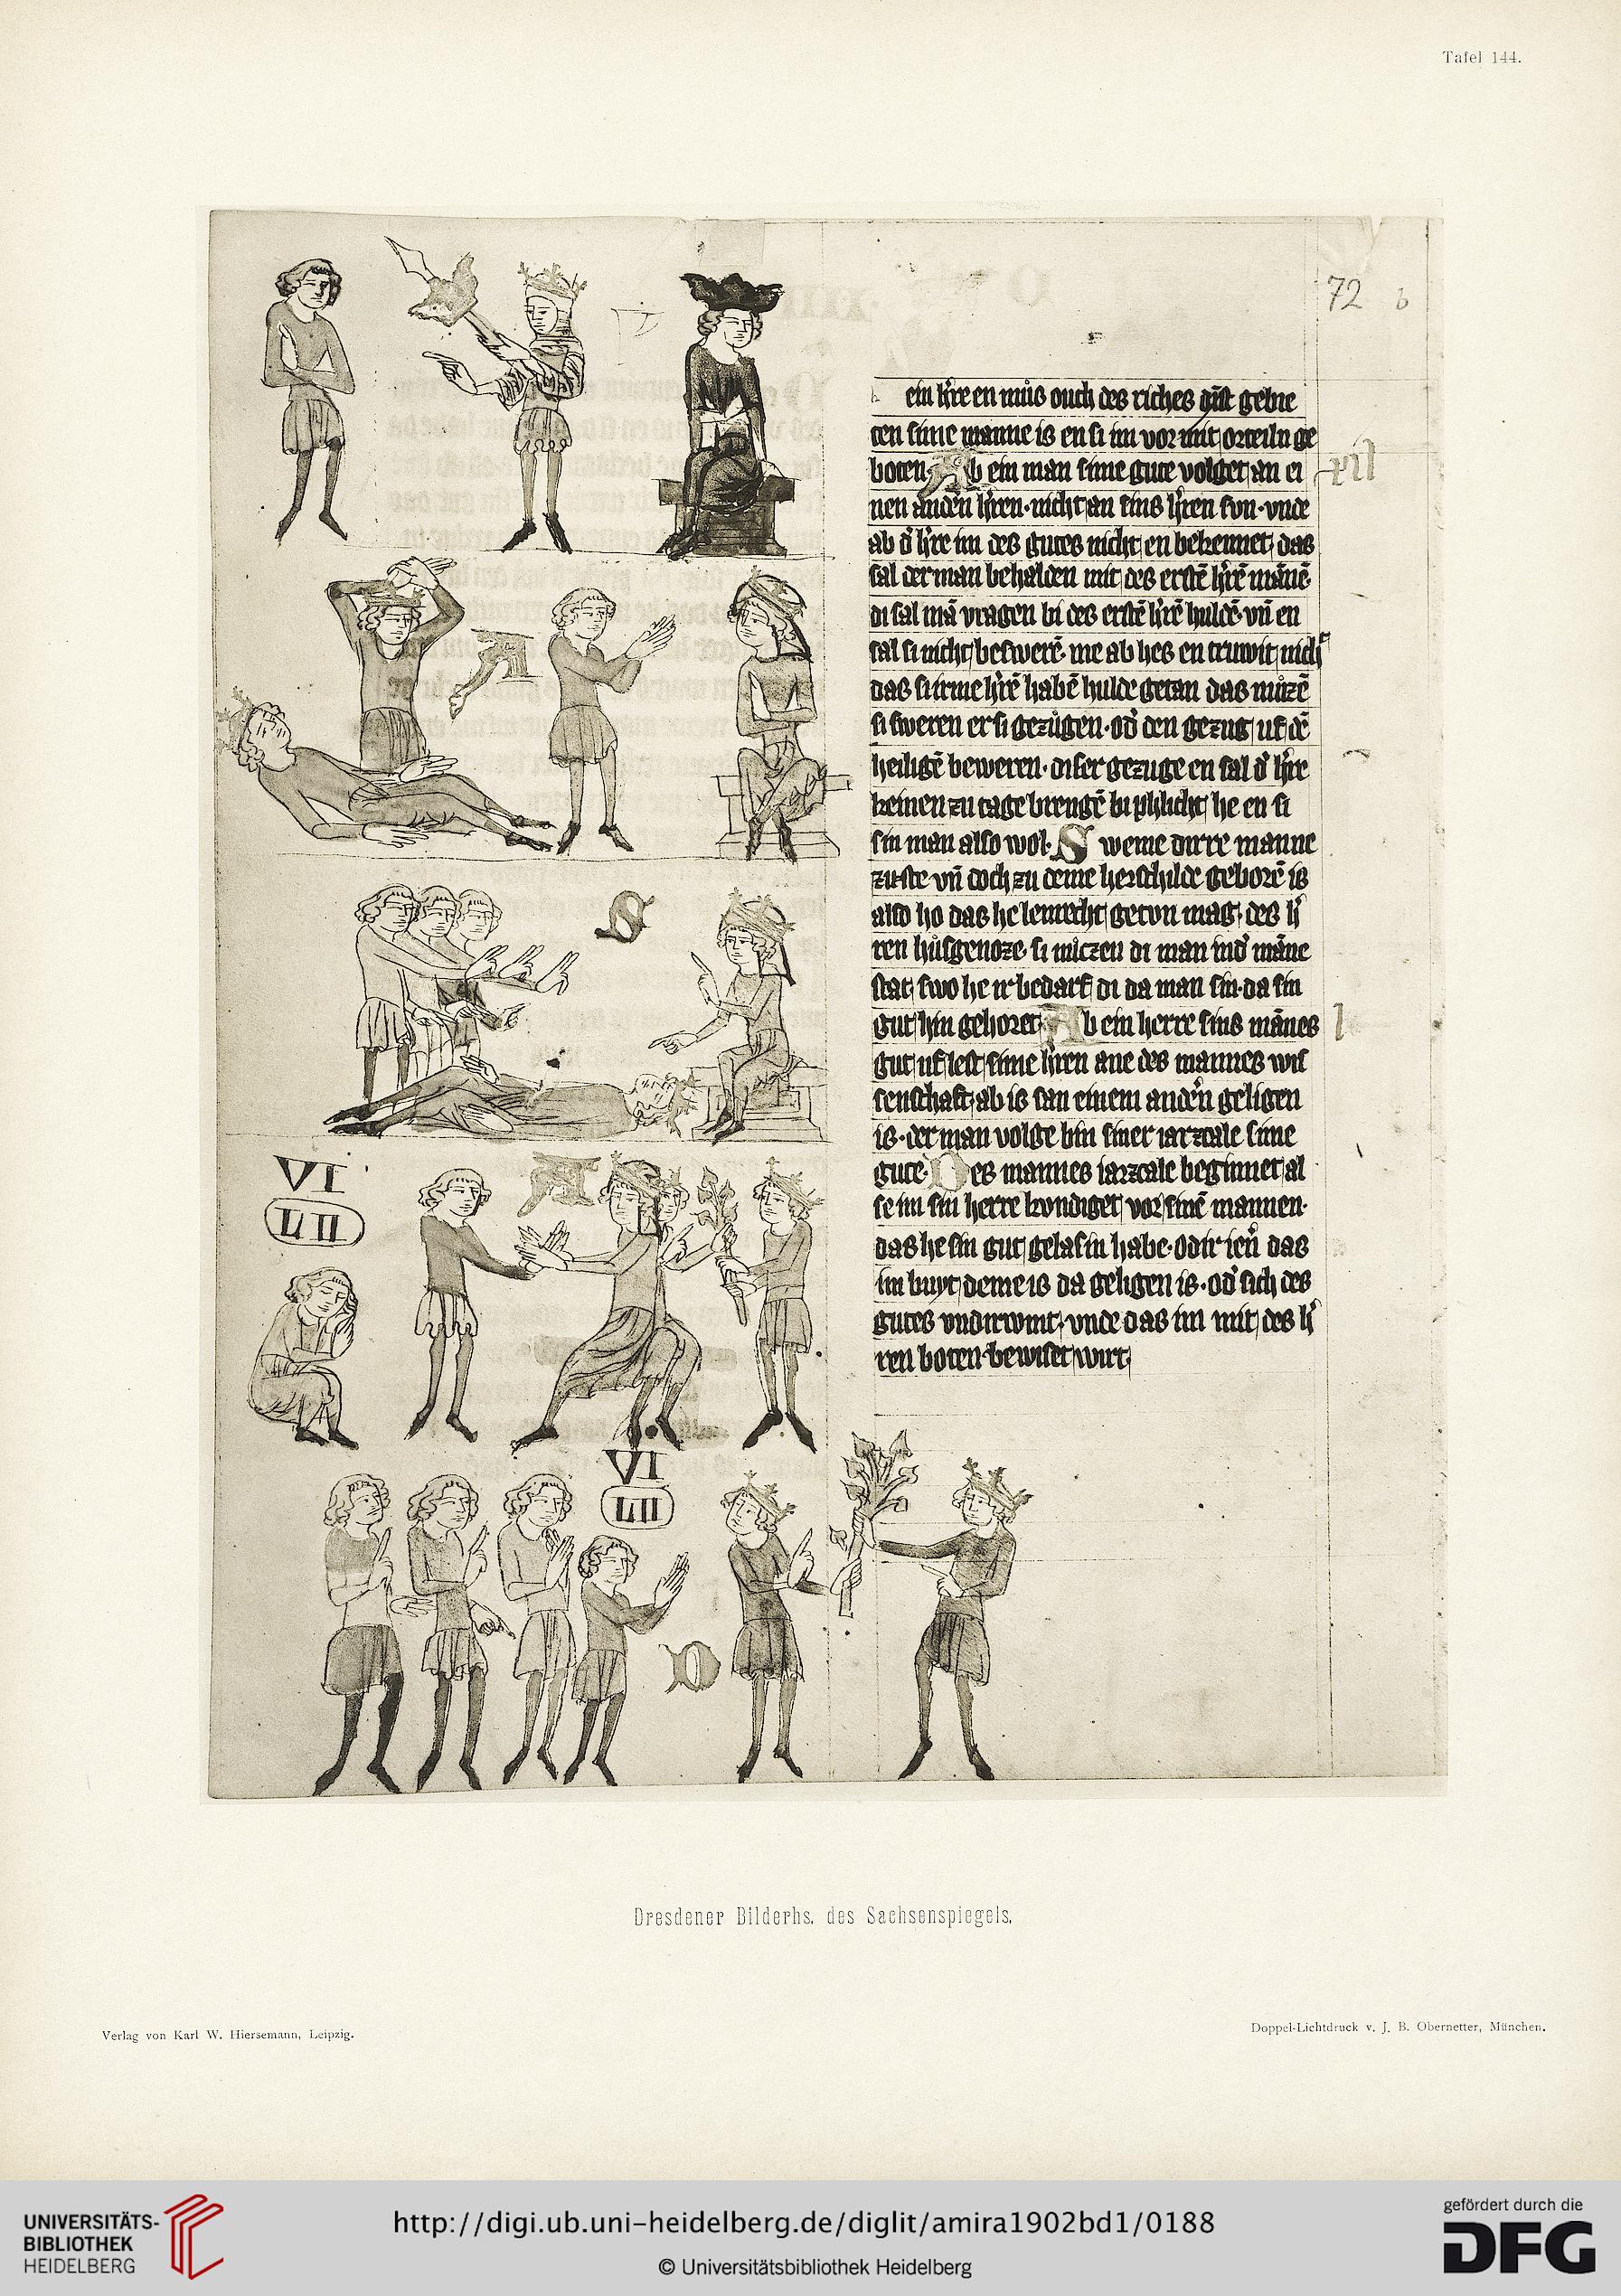 Tafel 144.
72 b
ein h're en můs ouch des riches
ten sime manne is en si im vor mit orteiln ge
boten. Ab ein man sime gute volget an ei
nen anden h'ren. nicht an sins h'ren svn. vnde
ab d' h're im des gutes nicht en bekennet, das
sal der man behalden mit des erstē h'rē mānē.
di sal mā vragen bi des erstē h'rē huldē. vn̄ en
sal si nicht beswerē. me ab hes en truwit nicht
das si irme h'rē habē hulde getan das můzē
si sweren er si gezůgen. od' den gezug uf dē
heiligē beweren. diser gezuge en sal d' h're
keinen zu tage brengē bi phlicht, he en si
sin man also wol. Sweme dirre manne
zuste vn̄ doch zu deme herschilde geborē is
also ho das he lenrecht getvn mag, des h'
ren hůsgenoze. si miczen di man ind' māne
stat, swo he ir bedarf di da man sin. da sin
gut hin gehoret. Ab ein herre sins mānes
gut uf lest sime h'ren ane des mannes wis
senschaft, ab is san einem anden geligen
is. der man volge bin siner iarzcale sime
gute. Des mannes iarzcale beginnet al
se im sin herre kvndiget vor sinē mannen.
das he sin gut gelasin habe. odir ien' das
im buyt, deme is da geligen is. od' sich des
gutes vndirwint, vnde das im mit des h'
ren boten bewiset wirt.
A
S
VI
LII
A
VI
LII
D
Dresdener Bilderhs. des Sachsenspiegels.
Verlag von Karl W. Hiersemann, Leipzig.
Doppel-Lichtdruck v. J. B. Obernetter, München.
UNIVERSITÄTS-
BIBLIOTHEK
HEIDELBERG
http://digi.ub.uni-heidelberg.de/diglit/amira1902bd1/0188
© Universitätsbibliothek Heidelberg
gefördert durch die
DFG